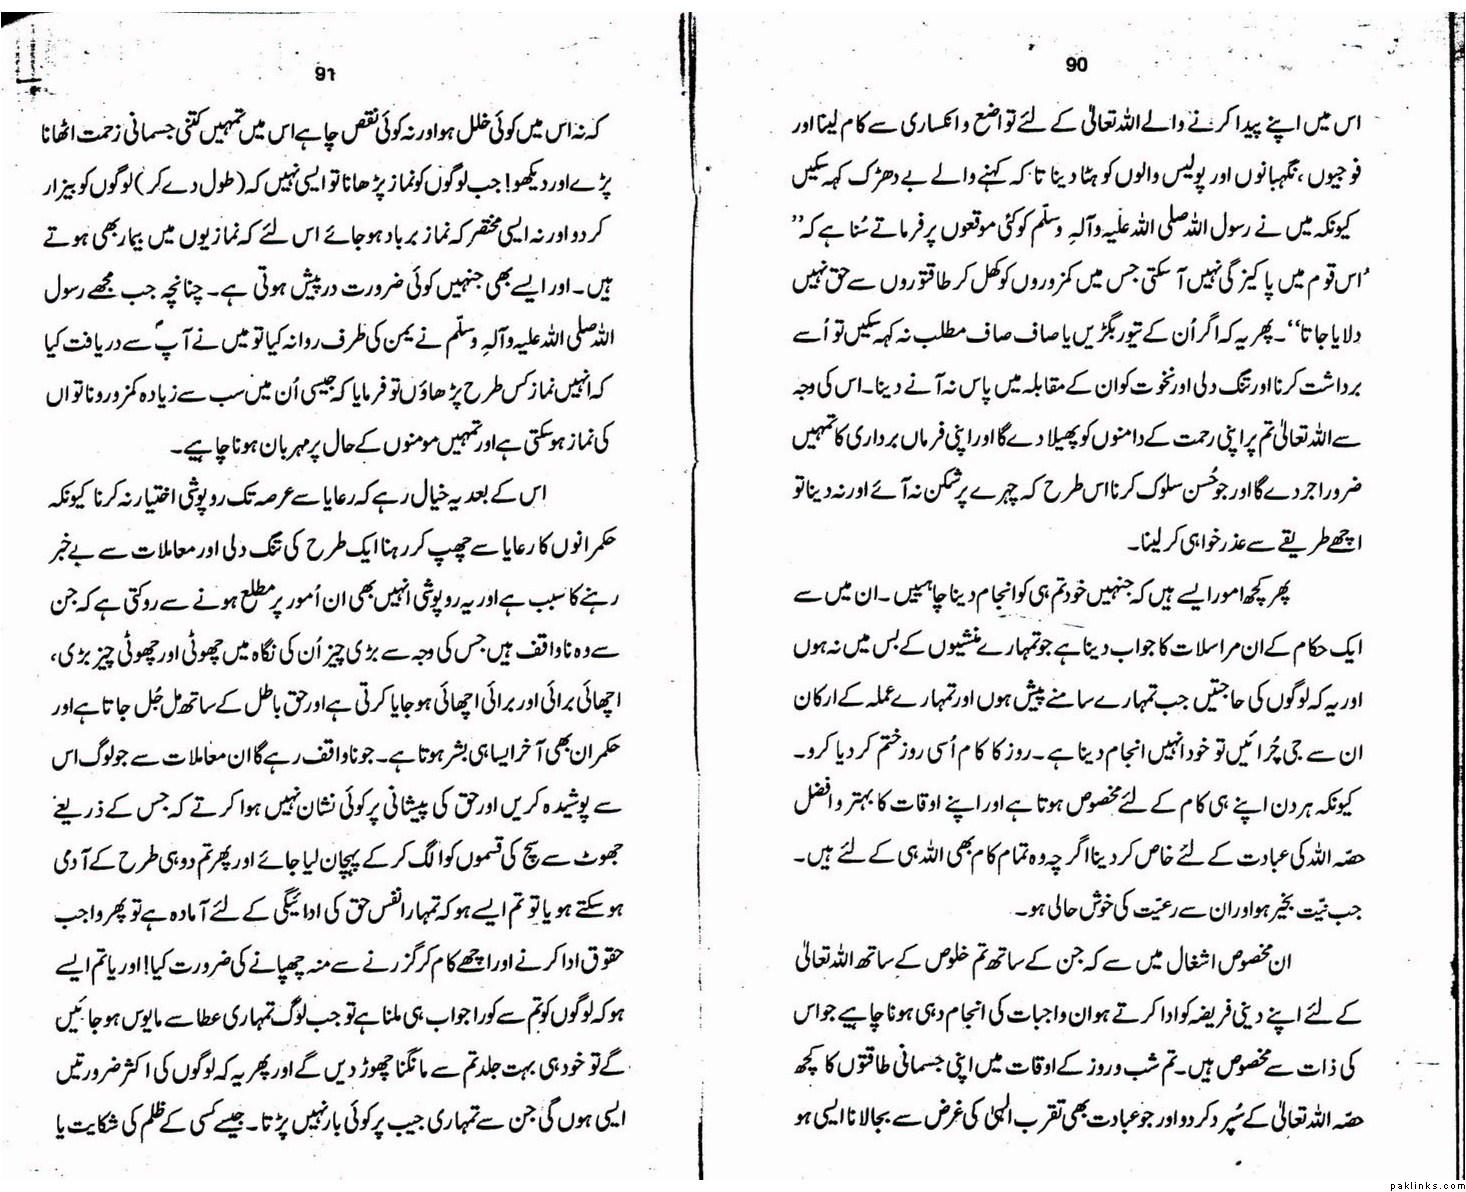 90
اس میں اپنے پیدا کرنے والے اللہ تعالیٰ کے لئے تواضع و انکساری سے کام لینا اور
فوجیوں، نگہبانوں اور پولیس والوں کو ہٹا دینا تا کہ کہنے والے بے دھڑک کہہ سکیں
کیونکہ میں نے رسول اللہ صلی اللہ علیہ وآلہٖ وسلّم کو کئی موقعوں پر فرماتے سُنا ہے کہ ’’
اس قوم میں پاکیزگی نہیں آ سکتی جس میں کمزوروں کو کھل کر طاقتوروں سے حق نہیں
دلایا جاتا‘‘۔ پھر یہ کہ اگر اُن کے تیور بگڑیں یا صاف صاف مطلب نہ کہہ سکیں تو اُسے
برداشت کرنا اور تنگ دلی اور نخوت کو ان کے مقابلہ میں پاس نہ آنے دینا۔ اس کی وجہ
سے اللہ تعالیٰ تم پر اپنی رحمت کے دامنوں کو پھیلا دے گا اور اپنی فرماں برداری کا تمہیں
ضرور اجر دے گا اور جو حُسن سلوک کرنا اس طرح کہ چہرے پر شکن نہ آئے اور نہ دینا تو
اچھے طریقے سے عذر خواہی کر لینا۔
پھر کچھ امور ایسے ہیں کہ جنہیں خود تم ہی کو انجام دینا چاہیئیں۔ ان میں سے
ایک حکام کے ان مراسلات کا جواب دینا ہے جو تمہارے منشیوں کے بس میں نہ ہوں
اور یہ کہ لوگوں کی حاجتیں جب تمہارے سامنے پیش ہوں اور تمہارے عملہ کے ارکان
ان سے جی چُرائیں تو خود انہیں انجام دینا ہے۔ روز کا کام اُسی روز ختم کر دیا کرو۔
کیونکہ ہر دن اپنے ہی کام کے لئے مخصوص ہوتا ہے اور اپنے اوقات کا بہتر و افضل
حصّہ اللہ کی عبادت کے لئے خاص کر دینا اگرچہ وہ تمام کام بھی اللہ ہی کے لئے ہیں۔
جب نیّت بخیر ہو اور ان سے رعیّت کی خوش حالی ہو۔
ان مخصوص اشغال میں سے کہ جن کے ساتھ تم خلوص کے ساتھ اللہ تعالیٰ
کے لئے اپنے دینی فریضہ کو ادا کرتے ہو ان واجبات کی انجام دہی ہونا چاہیے جو اس
کی ذات سے مخصوص ہیں۔ تم شب و روز کے اوقات میں اپنی جسمانی طاقتوں کا کچھ
حصّہ اللہ تعالیٰ کے سُپرد کر دو اور جو عبادت بھی تقرب الٰہی کی غرض سے بجا لانا ایسی ہو
91
کہ نہ اس میں کوئی خلل ہو اور نہ کوئی نقص چاہے اس میں تمہیں کتنی جسمانی زحمت اٹھانا
پڑے اور دیکھو! جب لوگوں کو نماز پڑھانا تو ایسی نہیں کہ (طول دے کر) لوگوں کو بیزار
کر دو اور نہ ایسی مختصر کہ نماز برباد ہو جائے اس لئے کہ نمازیوں میں بیمار بھی ہوتے
ہیں۔ اور ایسے بھی جنہیں کوئی ضرورت درپیش ہوتی ہے۔ چنانچہ جب مجھے رسول
اللہ صلی اللہ علیہ وآلہٖ وسلّم نے یمن کی طرف روانہ کیا تو میں نے آپؐ سے دریافت کیا
کہ انہیں نماز کس طرح پڑھاؤں تو فرمایا کہ جیسی اُن میں سب سے زیادہ کمزور و ناتواں
کی نماز ہو سکتی ہے اور تمہیں مومنوں کے حال پر مہربان ہونا چاہیے۔
اس کے بعد یہ خیال رہے کہ رعایا سے عرصہ تک روپوشی اختیار نہ کرنا کیونکہ
حکمرانوں کا رعایا سے چھپ کر رہنا ایک طرح کی تنگ دلی اور معاملات سے بے خبر
رہنے کا سبب ہے اور یہ روپوشی انہیں بھی ان اُمور پر مطلع ہونے سے روکتی ہے کہ جن
سے وہ ناواقف ہیں جس کی وجہ سے بڑی چیز اُن کی نگاہ میں چھوٹی اور چھوٹی چیز بڑی،
اچھائی برائی اور برائی اچھائی ہو جایا کرتی ہے اور حق باطل کے ساتھ مل جُل جاتا ہے اور
حکمران بھی آخر ایسا ہی بشر ہوتا ہے۔ جو ناواقف رہے گا ان معاملات سے جو لوگ اس
سے پوشیدہ کریں اور حق کی پیشانی پر کوئی نشان نہیں ہوا کرتے کہ جس کے ذریعے
جھوٹ سے سچ کی قسموں کو الگ کر کے پہچان لیا جائے اور پھر تم دو ہی طرح کے آدمی
ہو سکتے ہو یا تو تم ایسے ہو کہ تمہارا نفس حق کی ادائیگی کے لئے آمادہ ہے تو پھر واجب
حقوق ادا کرنے اور اچھے کام کر گزرنے سے منہ چھپانے کی ضرورت کیا! اور یا تم ایسے
ہو کہ لوگوں کو تم سے کورا جواب ہی ملنا ہے تو جب لوگ تمہاری عطا سے مایوس ہو جائیں
گے تو خود ہی بہت جلد تم سے مانگنا چھوڑ دیں گے اور پھر یہ کہ لوگوں کی اکثر ضرورتیں
ایسی ہوں گی جن سے تمہاری جیب پر کوئی بار نہیں پڑتا۔ جیسے کسی کے ظلم کی شکایت یا
paklinks.com